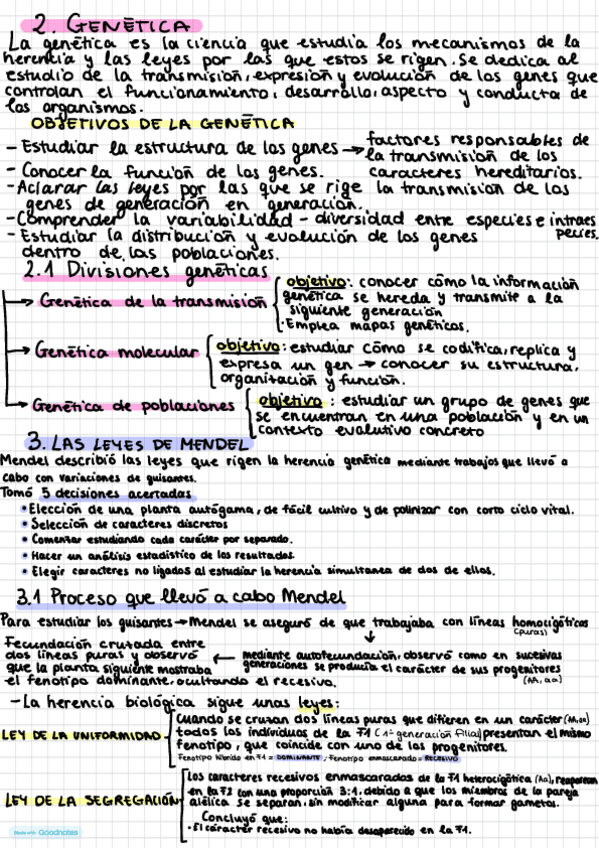 2. GENÉTICA
La genética es la ciencia que estudia los mecanismos de la
herencia y las leyes por las que estos se rigen. Se dedica al
estudio de la transmisión, expresión y evolución de los genes que
controlan el funcionamiento, desarrollo, aspecto y conducta de
los organismos.
OBJETIVOS DE LA GENÉTICA
- Estudiar la estructura de los genes → factores responsables de
la transmisión de los
caracteres hereditarios.
- Conocer la función de los genes.
- Aclarar las leyes por las que se rige la transmisión de los
genes de generación en generación.
- Comprender la variabilidad - diversidad entre especies e intraes
pecies.
- Estudiar la distribución y evolución de los genes
dentro de las poblaciones.
2.1 Divisiones genéticas
→ Genética de la transmisión
objetivo: conocer cómo la información
genética se hereda y transmite a la
siguiente generación
· Emplea mapas genéticos.
→ Genética molecular
objetivo: estudiar cómo se codifica, replica y
expresa un gen → conocer su estructura,
organitación y función.
→ Genética de poblaciones
objetivo: estudiar un grupo de genes que
se encuentran en una población y en un
contexto evolutivo concreto
3. LAS LEYES DE MENDEL
Mendel describió las leyes que rigen la herencia genética mediante trabajos que llevó a
cabo con variaciones de guisantes.
Tomó 5 decisiones acertadas
• Elección de una planta autógama, de fácil cultivo y de polinizar con corto ciclo vital.
• Selección de caracteres discretos
• Comenzar estudiando cada carácter por separado.
• Hacer un análisis estadístico de los resultados.
• Elegir caracteres no ligados al estudiar la herencia simultanea de dos de ellos.
3.1 Proceso que llevó a cabo Mendel
Para estudiar los guisantes → Mendel se aseguró de que trabajaba con líneas homocigóticas
(puras)
Fecundación cruzada entre
dos líneas puras y observó
que la planta siguiente mostraba
el fenotipo dominante, ocultando el recesivo.
← mediante autofecundación, observó como en sucesivas
generaciones se producía el carácter de sus progenitores
(AA, aa)
- La herencia biológica sigue unas leyes:
LEY DE LA UNIFORMIDAD
cuando se cruzan dos líneas puras que difieren en un carácter (AA, aa)
todos los individuos de la F1 (1ª generación filial) presentan el mismo
fenotipo, que coincide con uno de los progenitores.
Fenotipo híbrido en F1 = DOMINANTE; Fenotipo enmascarado = RECESIVO
LEY DE LA SEGREGACIÓN
Los caracteres recesivos enmascarados de la F1 heterocigótica (Aa), reaparecen
en la F2 con una proporción 3:1, debido a que los miembros de la pareja
alélica se separan, sin modificar alguna para formar gametos.
Concluyó que:
• El carácter recesivo no había desaparecido en la F1.
Made with Goodnotes